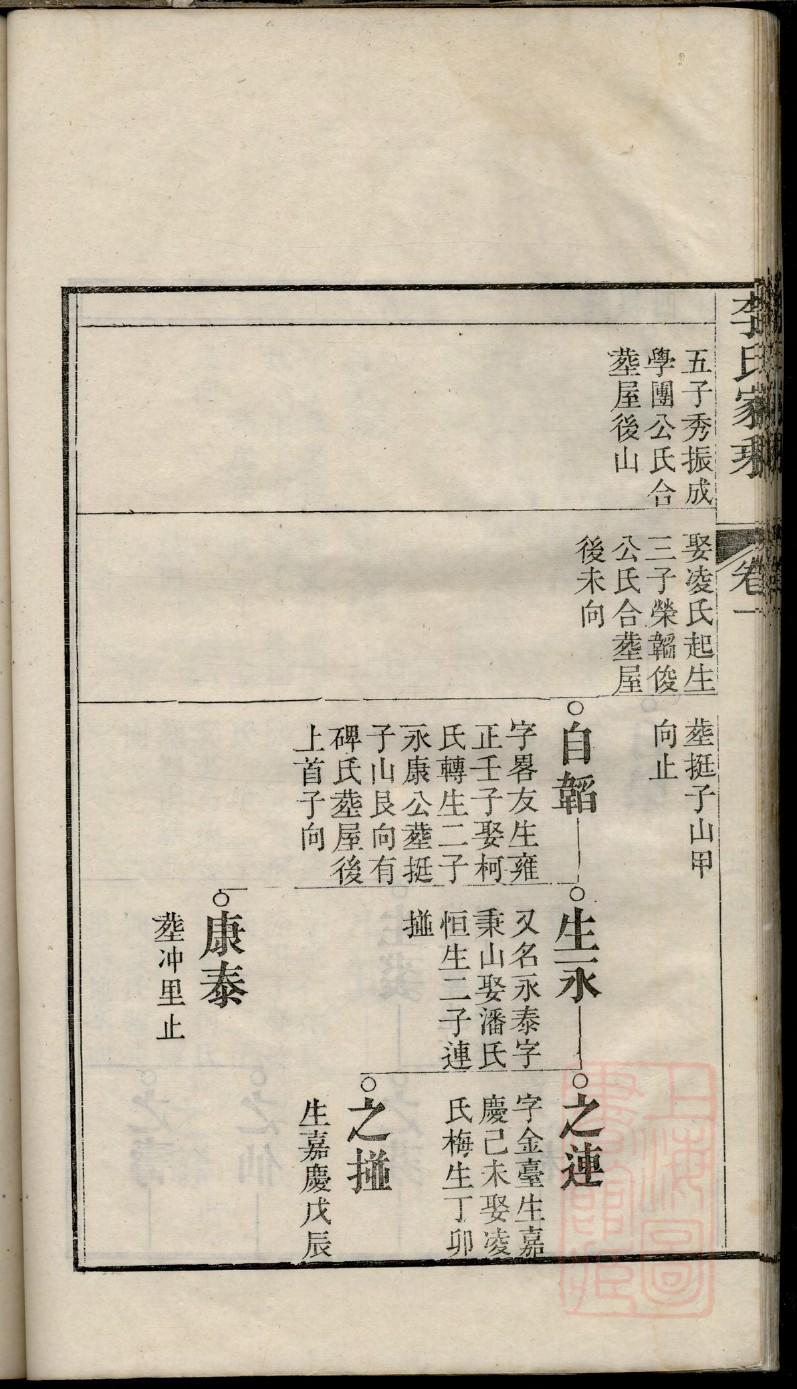 李氏家乘
卷一
五子秀振成
學團公氏合
塟屋後山
娶凌氏起生
三子榮韜俊
公氏合塟屋
後未向
塟挺子山甲
向止
自韜
字畧友生雍
正壬子娶柯
氏轉生二子
永康公塟挺
子山艮向有
碑氏塟屋後
上首子向
生永
又名永泰字
秉山娶潘氏
恒生二子連
㨂
康泰
塟冲里止
之連
字金臺生嘉
慶己未娶凌
氏梅生丁卯
之㨂
生嘉慶戊辰
上海圖
書館藏